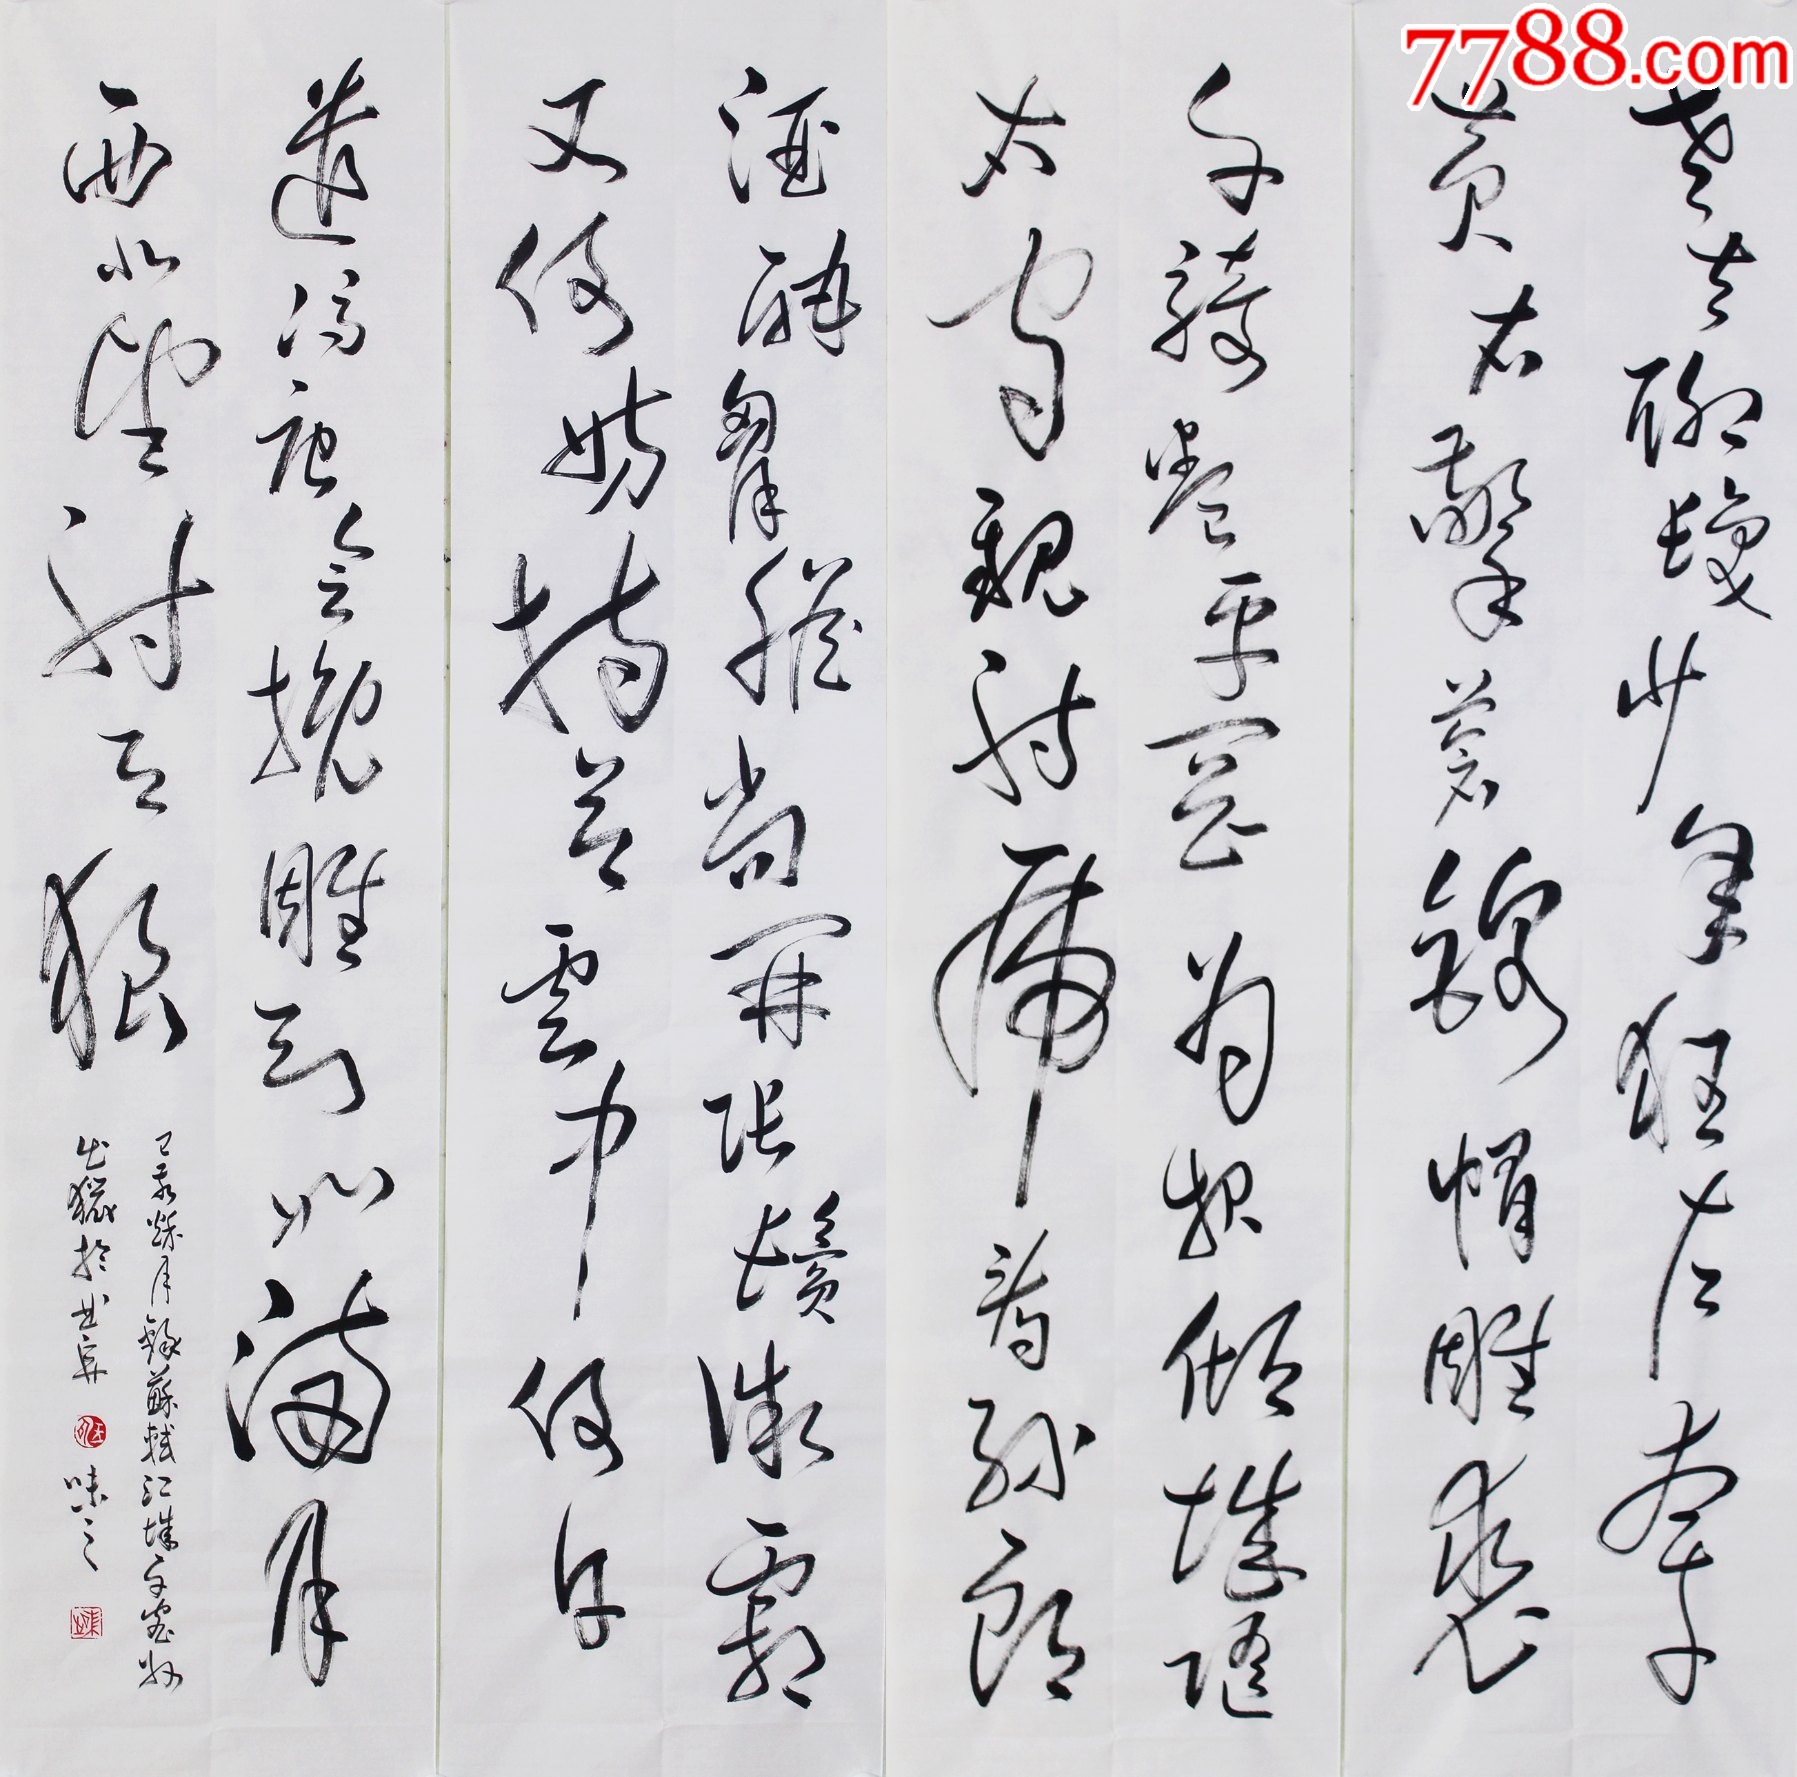 7788.com
老夫聊發少年狂左牽
黃右擎蒼錦帽雕裘
千騎卷平岡為報傾城隨
太守親射虎看孫郎
酒酣胷膽尚開張鬢微霜
又何妨持節雲中何日
遣馮唐會挽雕弓如滿月
西北望射天狼
己亥秋月錄蘇軾江城子密州
出獵於曲阜 味之